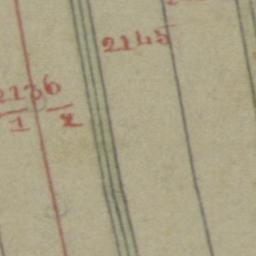 2145
2136
1 2